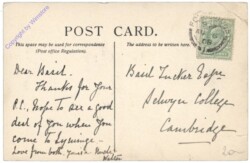 POST CARD.
This space may be used for correspondence
(Post office Regulations).
The address to be written
Dear Basil.
Thanks for your
P.C. Hope to see a good
deal of you when you
come to
love from both yours
Basil Tucker Esqre
Selwyn College
Cambridge
20-